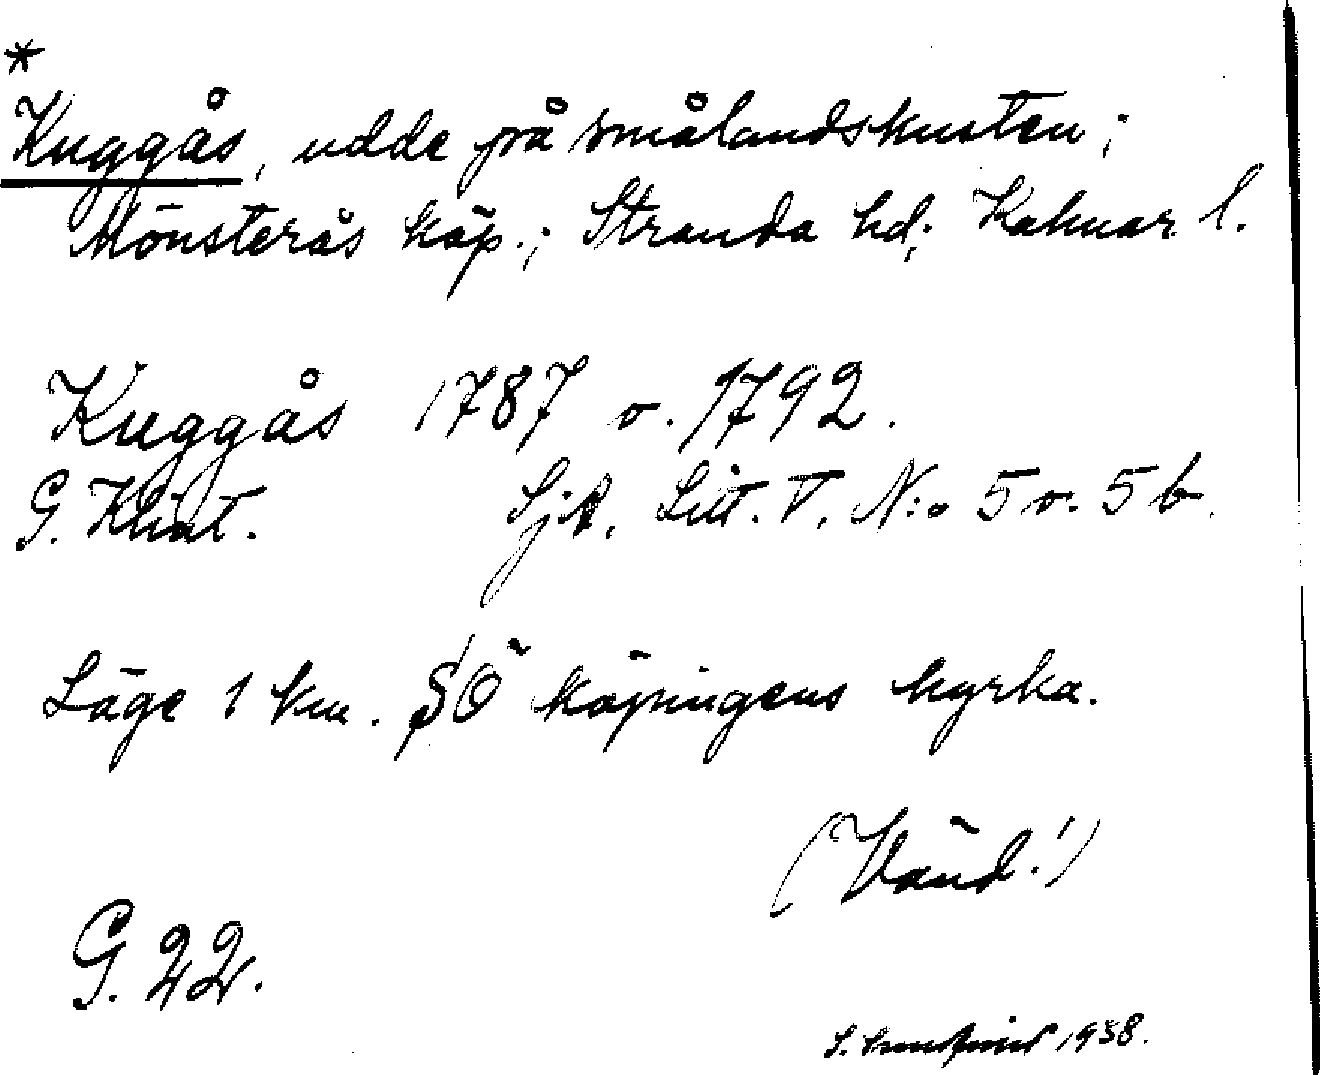 *
Kuggås, udde på smålandskusten;
Mönsterås köp.; Stranda hd; Kalmar l.
Kuggås 1787 o. 1792.
G. Klint. SjK. Litt. V. N:o 5 o. 5 b.
Läge 1 km. SÖ köpingens kyrka.
(Vänd!)
G. 22.
1938.